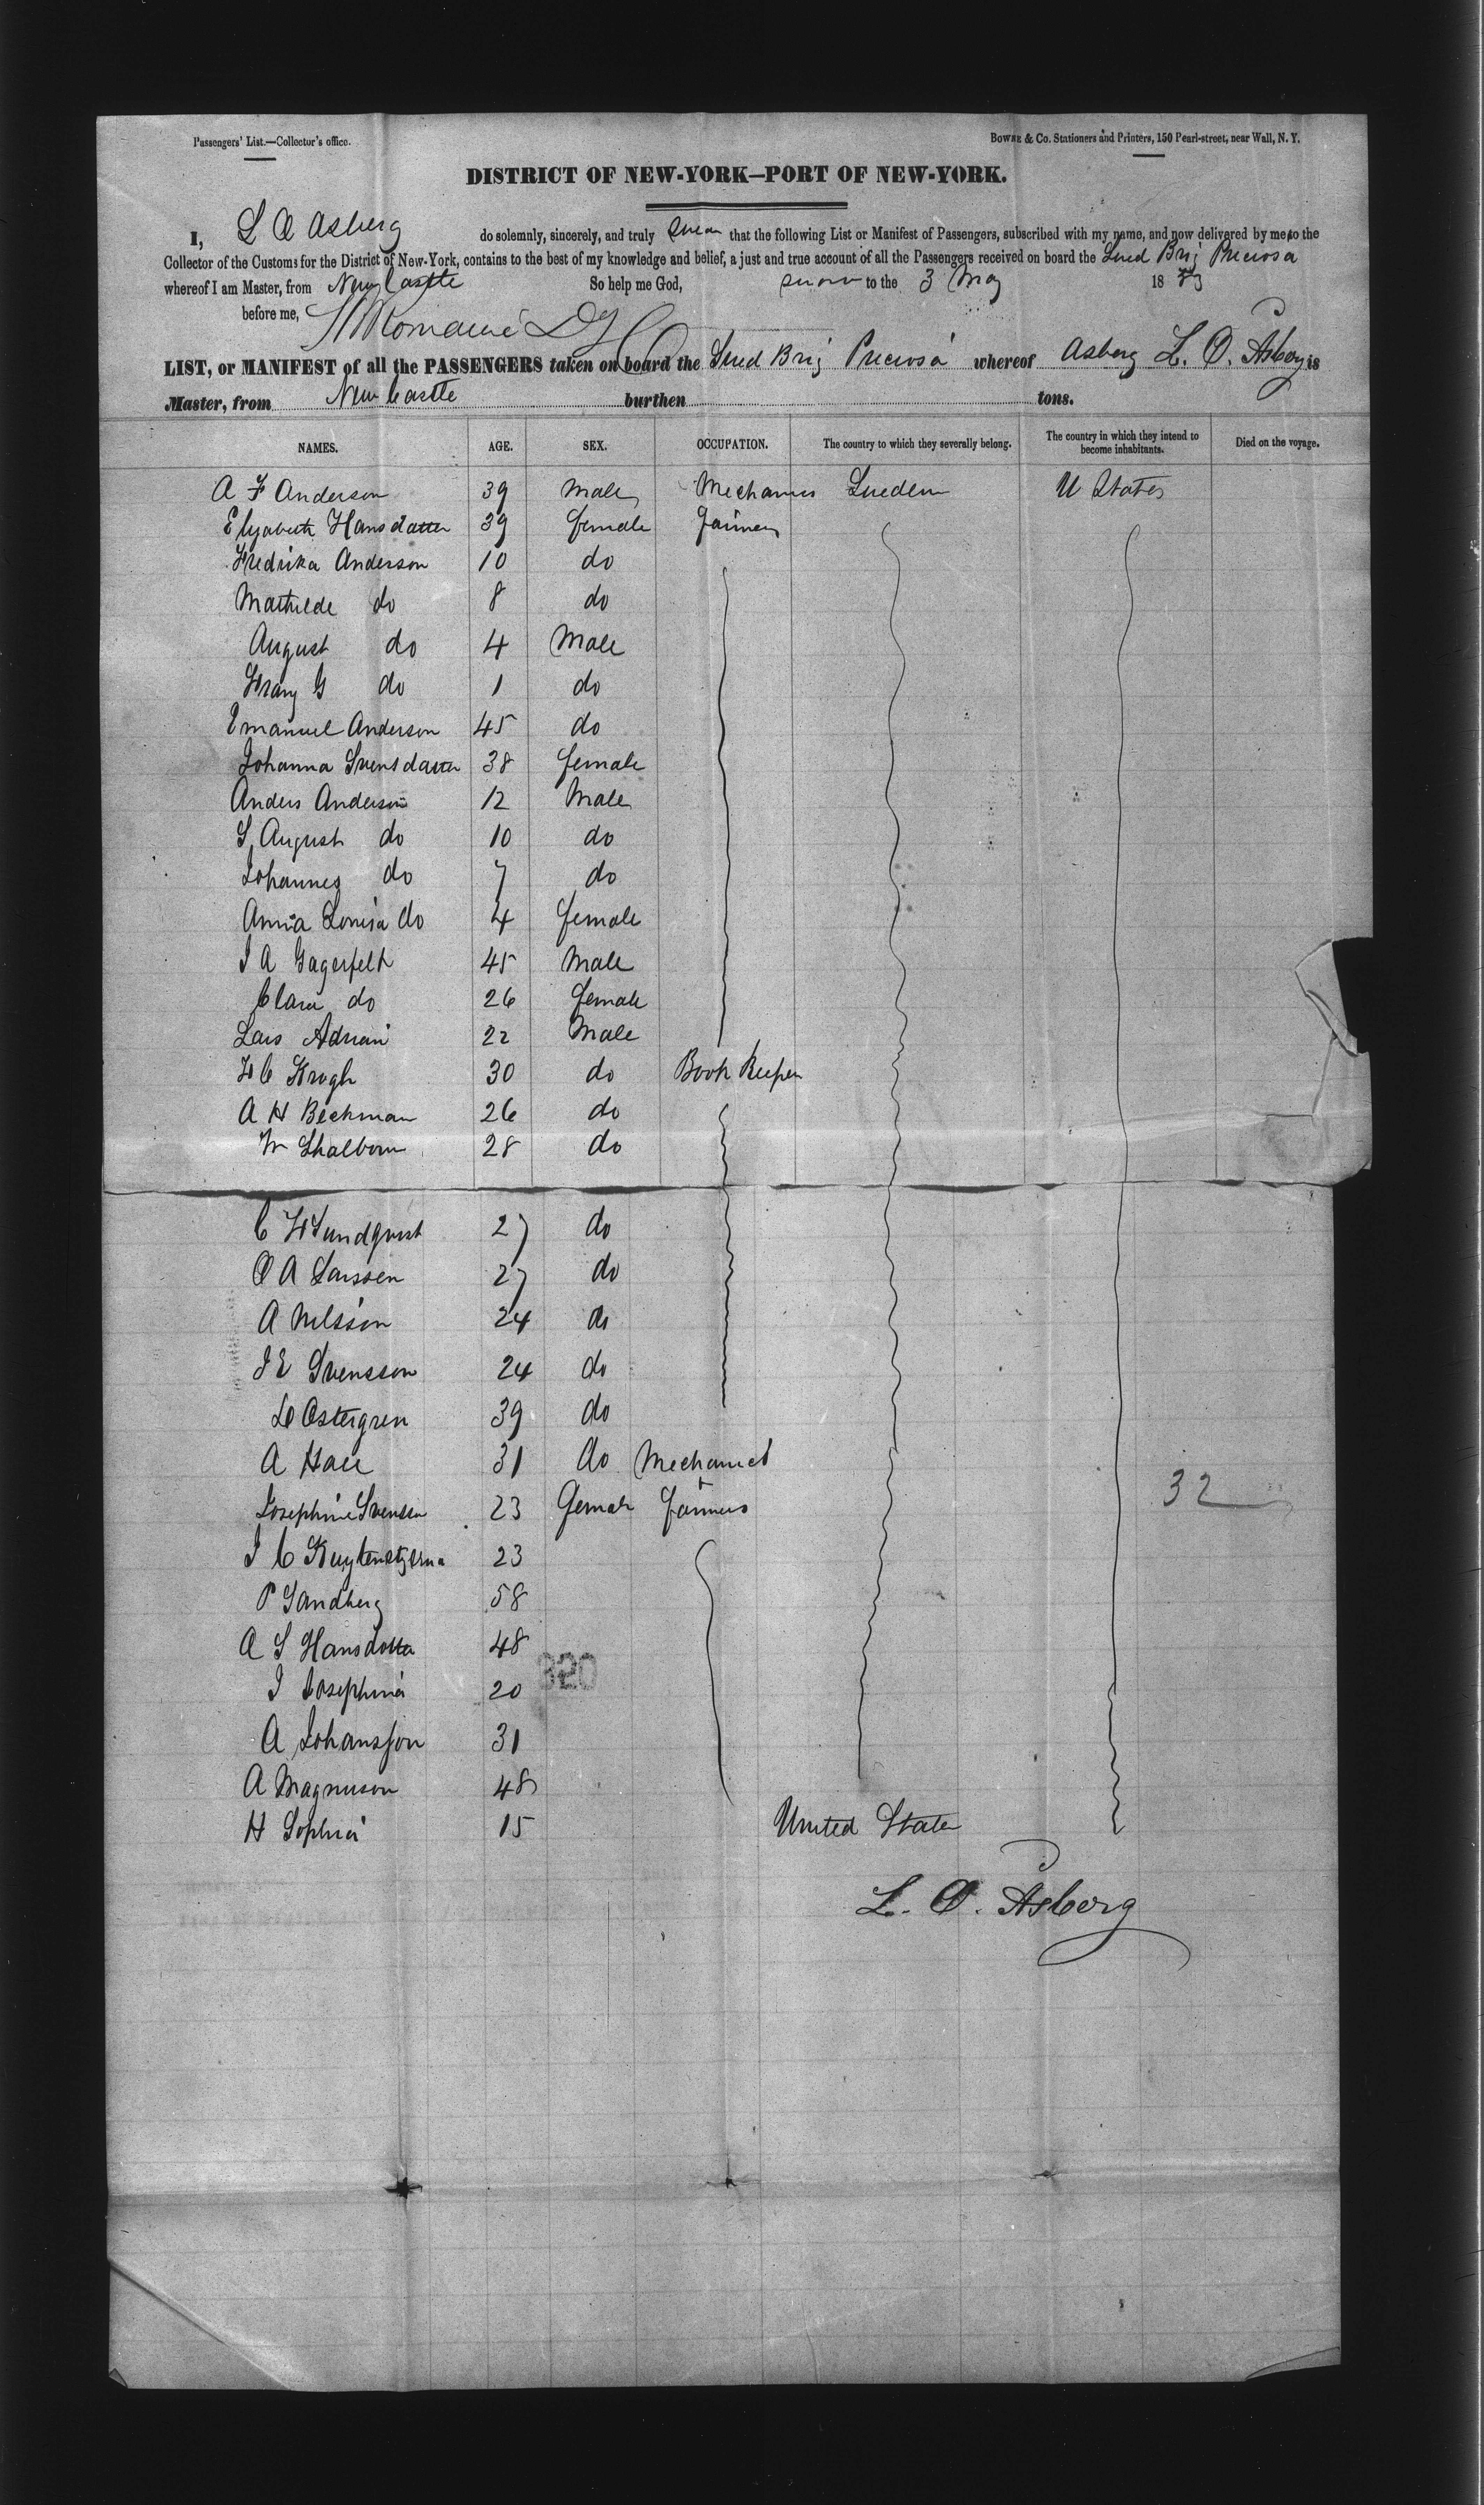 Passengers' List.—Collector's office.
Bowne & Co. Stationers and Printers, 150 Pearl-street, near Wall, N. Y.
DISTRICT OF NEW-YORK—PORT OF NEW-YORK.
I, L O Asberg do solemnly, sincerely, and truly swear that the following List or Manifest of Passengers, subscribed with my name, and now delivered by me to the
Collector of the Customs for the District of New-York, contains to the best of my knowledge and belief, a just and true account of all the Passengers received on board the Swed Brig Preciosa
whereof I am Master, from New Castle So help me God, sworn to the 3 May 18
before me,
LIST, or MANIFEST of all the PASSENGERS taken on board the Swed Brig Preciosa whereof Asberg L. O. Asberg is
Master, from New Castle burthen tons.
NAMES. AGE. SEX. OCCUPATION. The country to which they severally belong. The country in which they intend to become inhabitants. Died on the voyage.
A F Anderson 39 Male Mechanics Sweden U States
Elyabeth Hansdatter 39 female farmers
Fredrika Anderson 10 do
Mathilde do 8 do
August do 4 Male
Frany G do 1 do
Emanuel Anderson 45 do
Johanna Svensdatter 38 female
Anders Anderson 12 Male
S August do 10 do
Johannes do 7 do
Anna Lovisa do 4 female
J A Gagerfelt 45 Male
Clara do 26 female
Lars Adrian 22 Male
F C Krogh 30 do Book Keeper
A H Beckman 26 do
W 28 do
C F Sundqvist 27 do
O A Larssen 27 do
A Nilsson 24 do
J E Svensson 24 do
Ostergren 39 do
A 31 do Mechanics
Josephine Svensen 23 female farmers
32
J C 23
P Sandberg 58
A S Hansdotter 48
320
J Josephina 20
A Johansson 31
A Magnuson 48
H Sophia 15 United State
L. O. Asberg